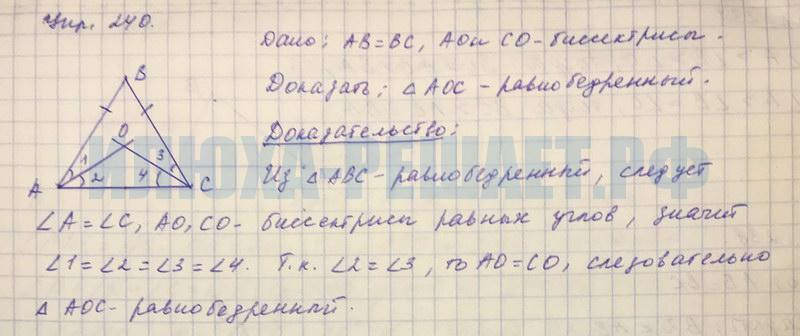 Упр. 240.
Дано: AB=BC, AO и CO-биссектрисы.
Доказать: △ AOC - равнобедренный.
Доказательство:
Из △ ABC - равнобедренный, следует
∠A=∠C, AO, CO- биссектрисы равных углов, значит
∠1=∠2=∠3=∠4. Т.к. ∠2=∠3, то AO=CO, следовательно
△ AOC- равнобедренный.
B
O
1
3
A
2
4
C
ИЛЮХА-РЕШАЕТ.РФ